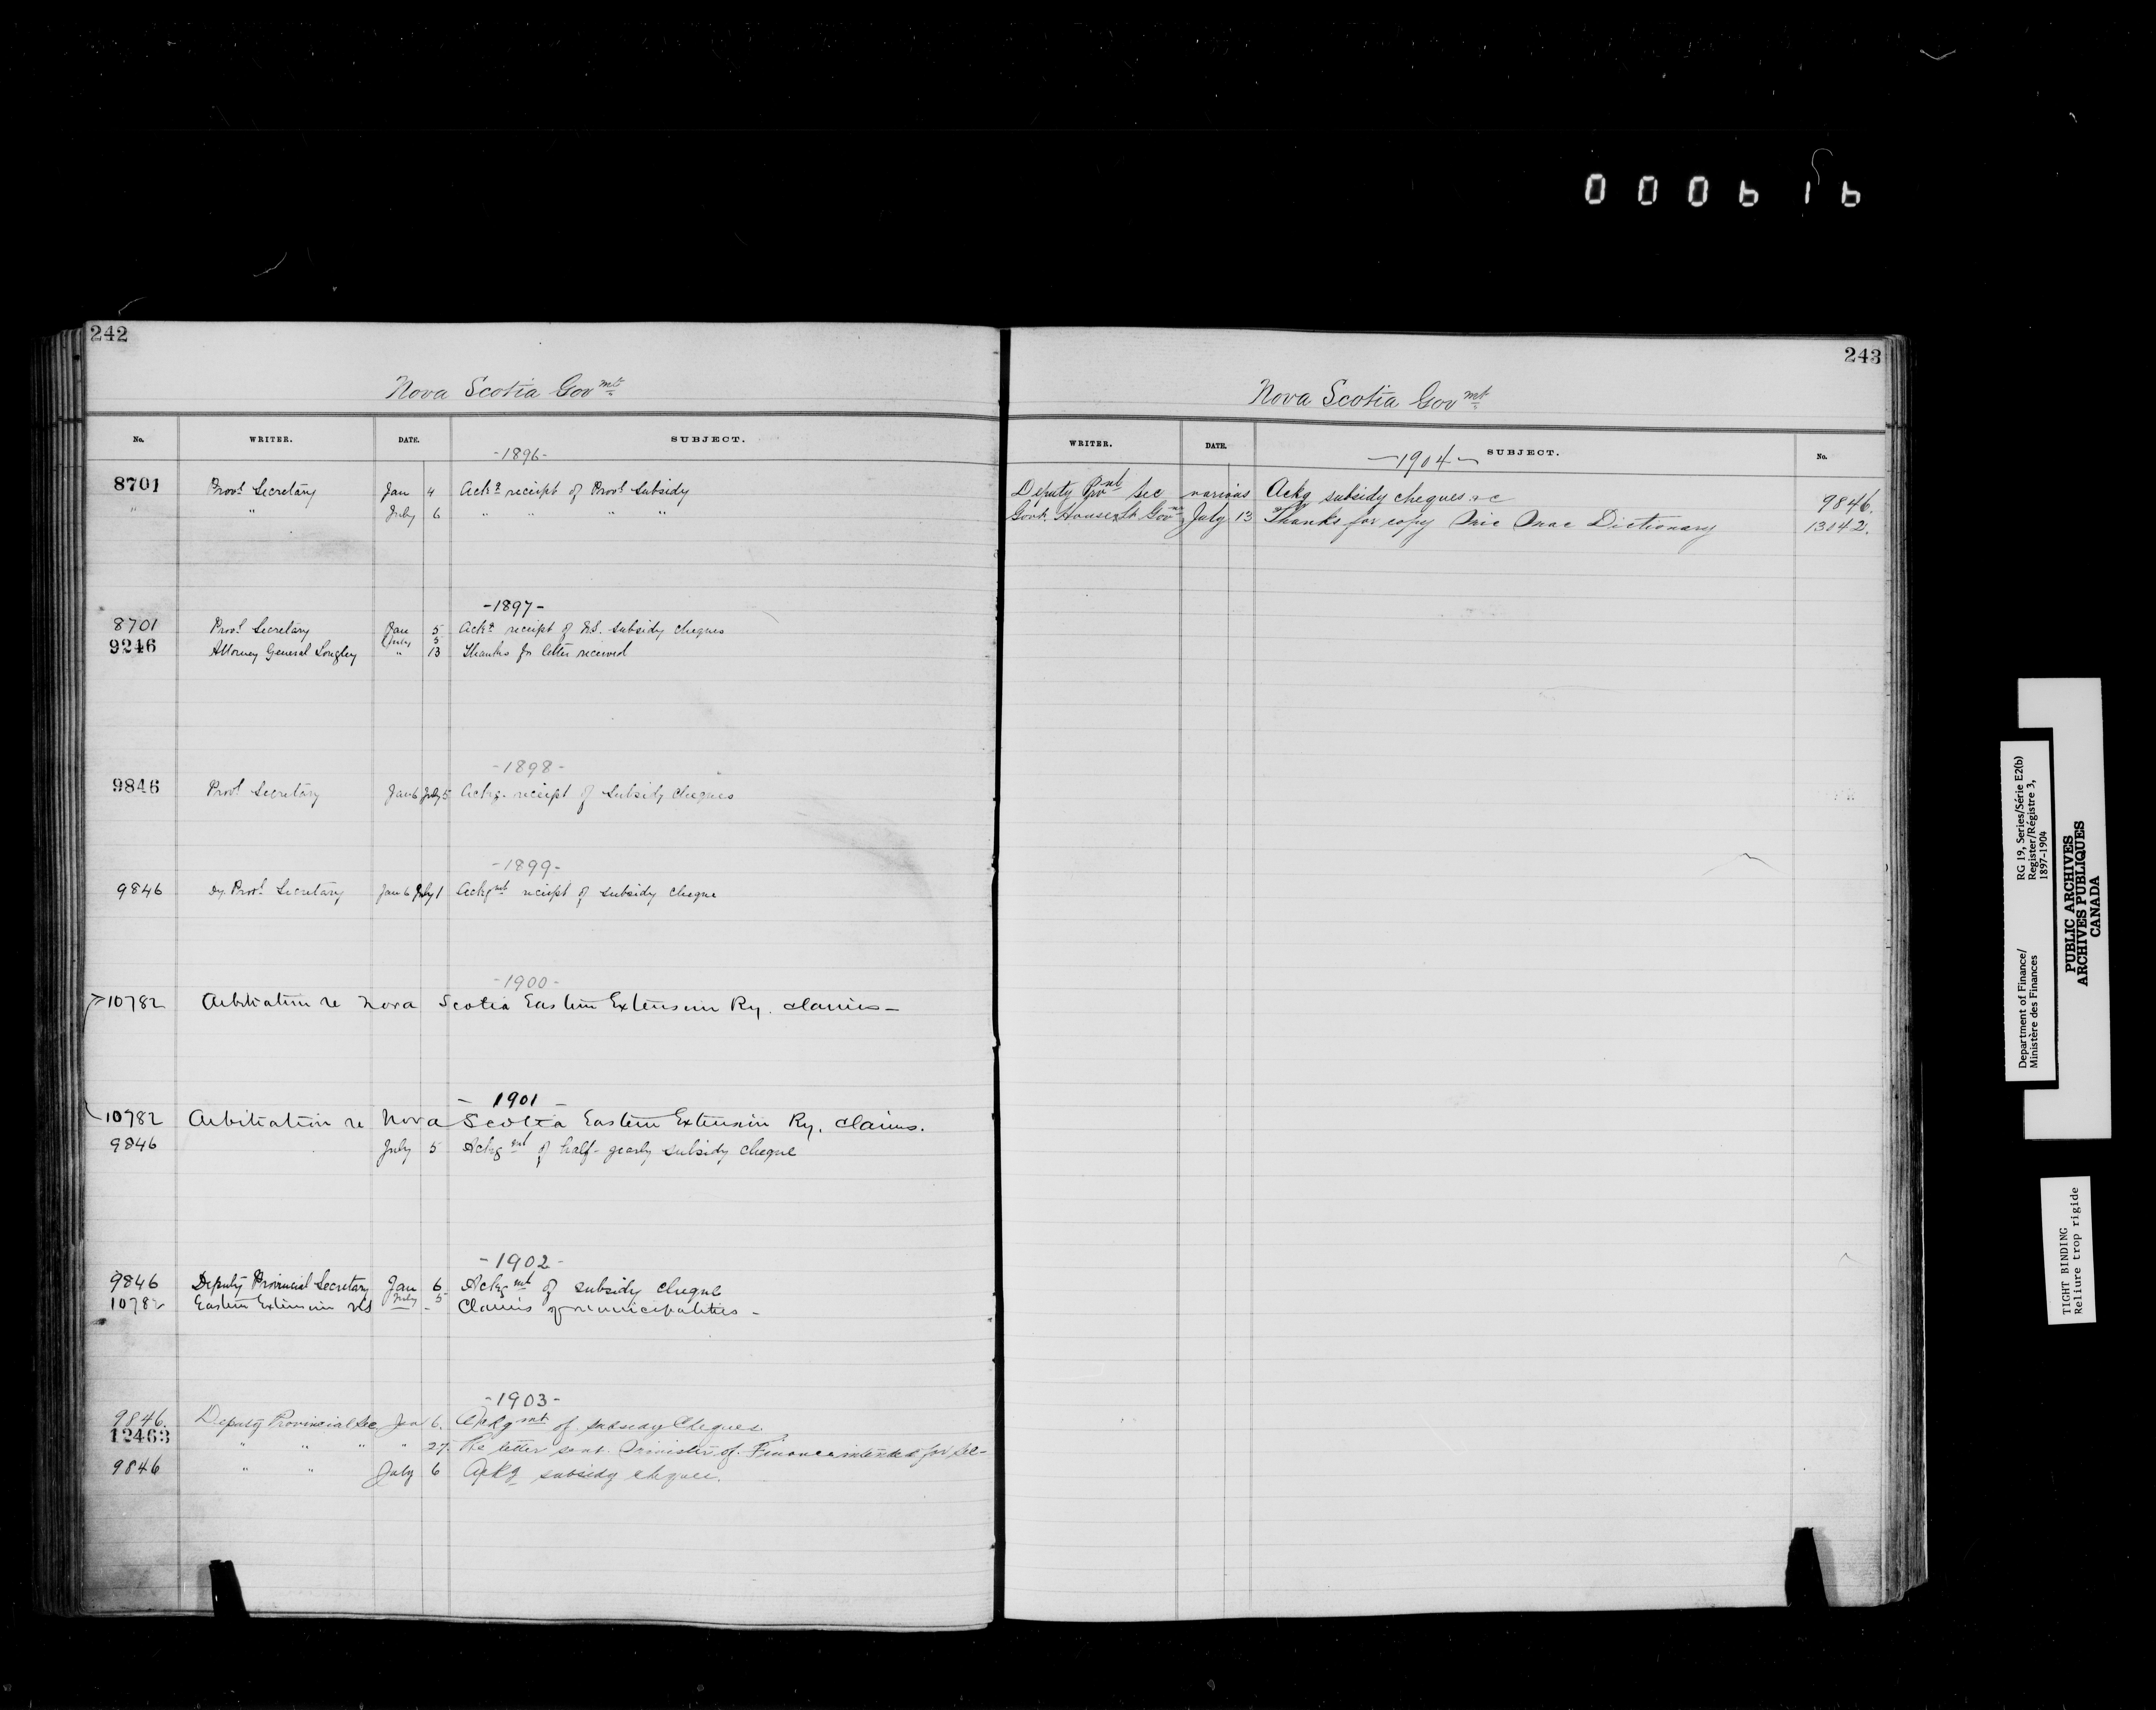 000616
242
Nova Scotia Govmt
No. WRITER. DATE. SUBJECT.
-1896-
8701 Provl Secretary Jan 4 Ackg receipt of Provl Subsidy
" " July 6 " " " " "
-1897-
8701 Provl Secretary Jan 5 Ackg receipt of N.S. subsidy cheques
July 5
9246 Attorney General Longley " 13 Thanks for letter received
-1898-
9846 Provl Secretary Jan 6 July 5 Ackg. receipt of Subsidy Cheques
-1899-
9846 Dy Provl Secretary Jan 6 July 1 Ackgmt receipt of subsidy cheque
-1900-
10782 Arbitration re Nova Scotia Eastern Extension Ry. claims-
- 1901 -
10782 Arbitration re Nova Scotia Eastern Extension Ry. Claims.
9846 July 5 Ackgmt of half-yearly subsidy cheque
-1902-
9846 Deputy Provincial Secretary Jan 6 Ackgmt of subsidy cheque
July 5
10782 Eastern Extension Claims of municipalities -
-1903-
9846. Deputy Provincial Sec Jan 6. Ackgmt of subsidy Cheques.
12463 " " " " 27. Re letter sent Minister of Finance intended for
9846 " " July 6 Ackg subsidy cheques.
243
Nova Scotia Govmt
WRITER. DATE. SUBJECT. No.
-1904-
Deputy Provl Sec various Ackg subsidy cheques &c 9846.
Govt. House Lt Govnr July 13 Thanks for copy Mic Mac Dictionary 13042.
Department of Finance/ RG 19, Series/Série E2(b)
Ministère des Finances Register/Régistre 3,
1897-1904
PUBLIC ARCHIVES
ARCHIVES PUBLIQUES
CANADA
TIGHT BINDING
Reliure trop rigide